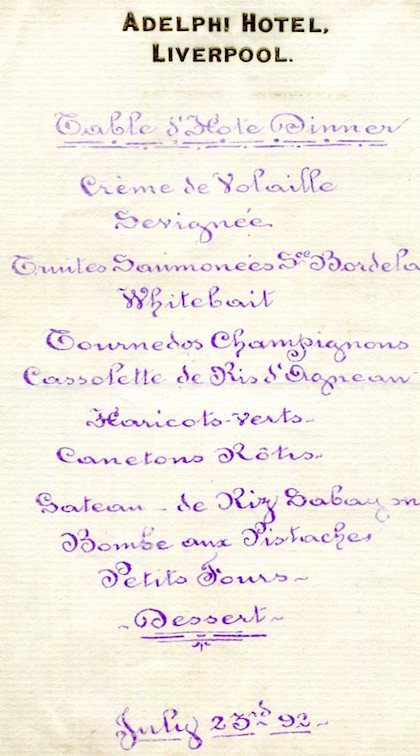 ADELPHI HOTEL,
LIVERPOOL.
Table d'Hote Dinner
Crème de Volaille
Sevignée
Truites Saumonées Sce Bordela
Whitebait
Tournedos Champignons
Cassolette de Ris d'Agneau
Haricots-verts-
Canetons Rôtis-
Gateau - de Riz Sabayon
Bombe aux Pistaches
Petits Fours-
-Dessert-
July 23rd 92-